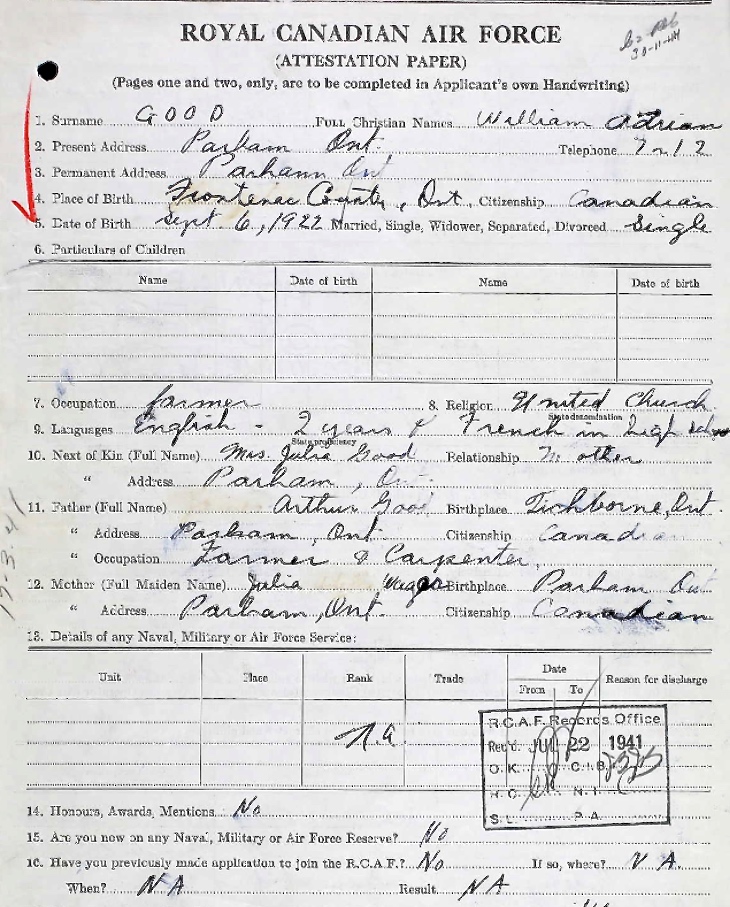 ROYAL CANADIAN AIR FORCE
(ATTESTATION PAPER)
30-11-44
(Pages one and two, only, are to be completed in Applicant's own Handwriting)
1. Surname GOOD Full Christian Names William Adrian
2. Present Address Parham Ont. Telephone 7r12
3. Permanent Address Parham Ont
4. Place of Birth Frontenac County, Ont Citizenship Canadian
5. Date of Birth Sept. 6, 1922 Married, Single, Widower, Separated, Divorced Single
6. Particulars of Children
Name Date of birth Name Date of birth
7. Occupation farmer 8. Religion United Church
State denomination
9. Languages English - 2 years of French in High School
State proficiency
10. Next of Kin (Full Name) Mrs. Julia Good Relationship Mother
" Address Parham, Ont.
11. Father (Full Name) Arthur Good Birthplace Tichborne, Ont.
" Address Parham, Ont. Citizenship Canadian
" Occupation Farmer & Carpenter
12. Mother (Full Maiden Name) Julia Wager Birthplace Parham Ont
" Address Parham, Ont. Citizenship Canadian
13. Details of any Naval, Military or Air Force Service:
Unit Place Rank Trade Date Reason for discharge
From To
N.A.
R.C.A.F. Records Office
Rec'd. JUL 22 1941
O.K. C.I.B.
H.C. N.I.
S.L. P.A.
14. Honours, Awards, Mentions. No
15. Are you now on any Naval, Military or Air Force Reserve? No
16. Have you previously made application to join the R.C.A.F.? No If so, where? N A.
When? NA Result NA